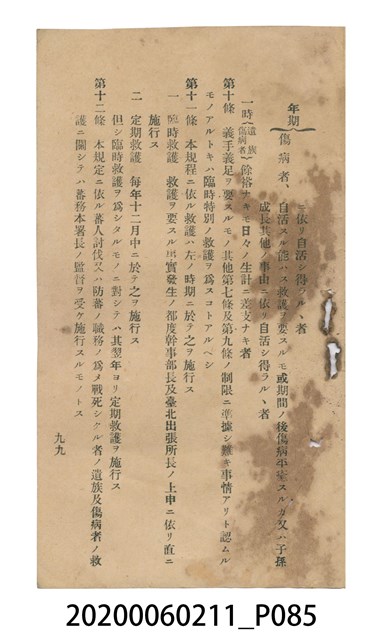 モ依リ自活シ得ラルヽ者
年期 傷病者、自活スル能ハス救護ヲ要スルモ或期間ノ後傷病平癒スルカ又ハ子孫
成長其他ノ事由ニ依リ自活シ得ラルヽ者
一時 遺族 傷病者 餘裕ナキモ日々ノ生計ニ差支ナキ者
第十條 義手義足ヲ要スルモノ其他第七條及第九條ノ制限ニ準據シ難キ事情アリト認ムル
モノアルトキハ臨時特別ノ救護ヲ爲スコトアルヘシ
第十一條 本規程ニ依ル救護ハ左ノ時期ニ於テ之ヲ施行ス
一 臨時救護 救護ヲ要スル出實發生ノ都度幹事部長及臺北出張所長ノ上申ニ依リ直ニ
施行ス
二 定期救護 每年十二月中ニ於テ之ヲ施行ス
但シ臨時救護ヲ爲シタルモノニ對シテハ其翌年ヨリ定期救護ヲ施行ス
第十二條 本規定ニ依ル蕃人討伐又ハ防蕃ノ職務ノ爲メ戰死シタル者ノ遺族及傷病者ノ救
護ニ關シテハ蕃務本署長ノ監督ヲ受ケ施行スルモノトス
九九
20200060211_P085